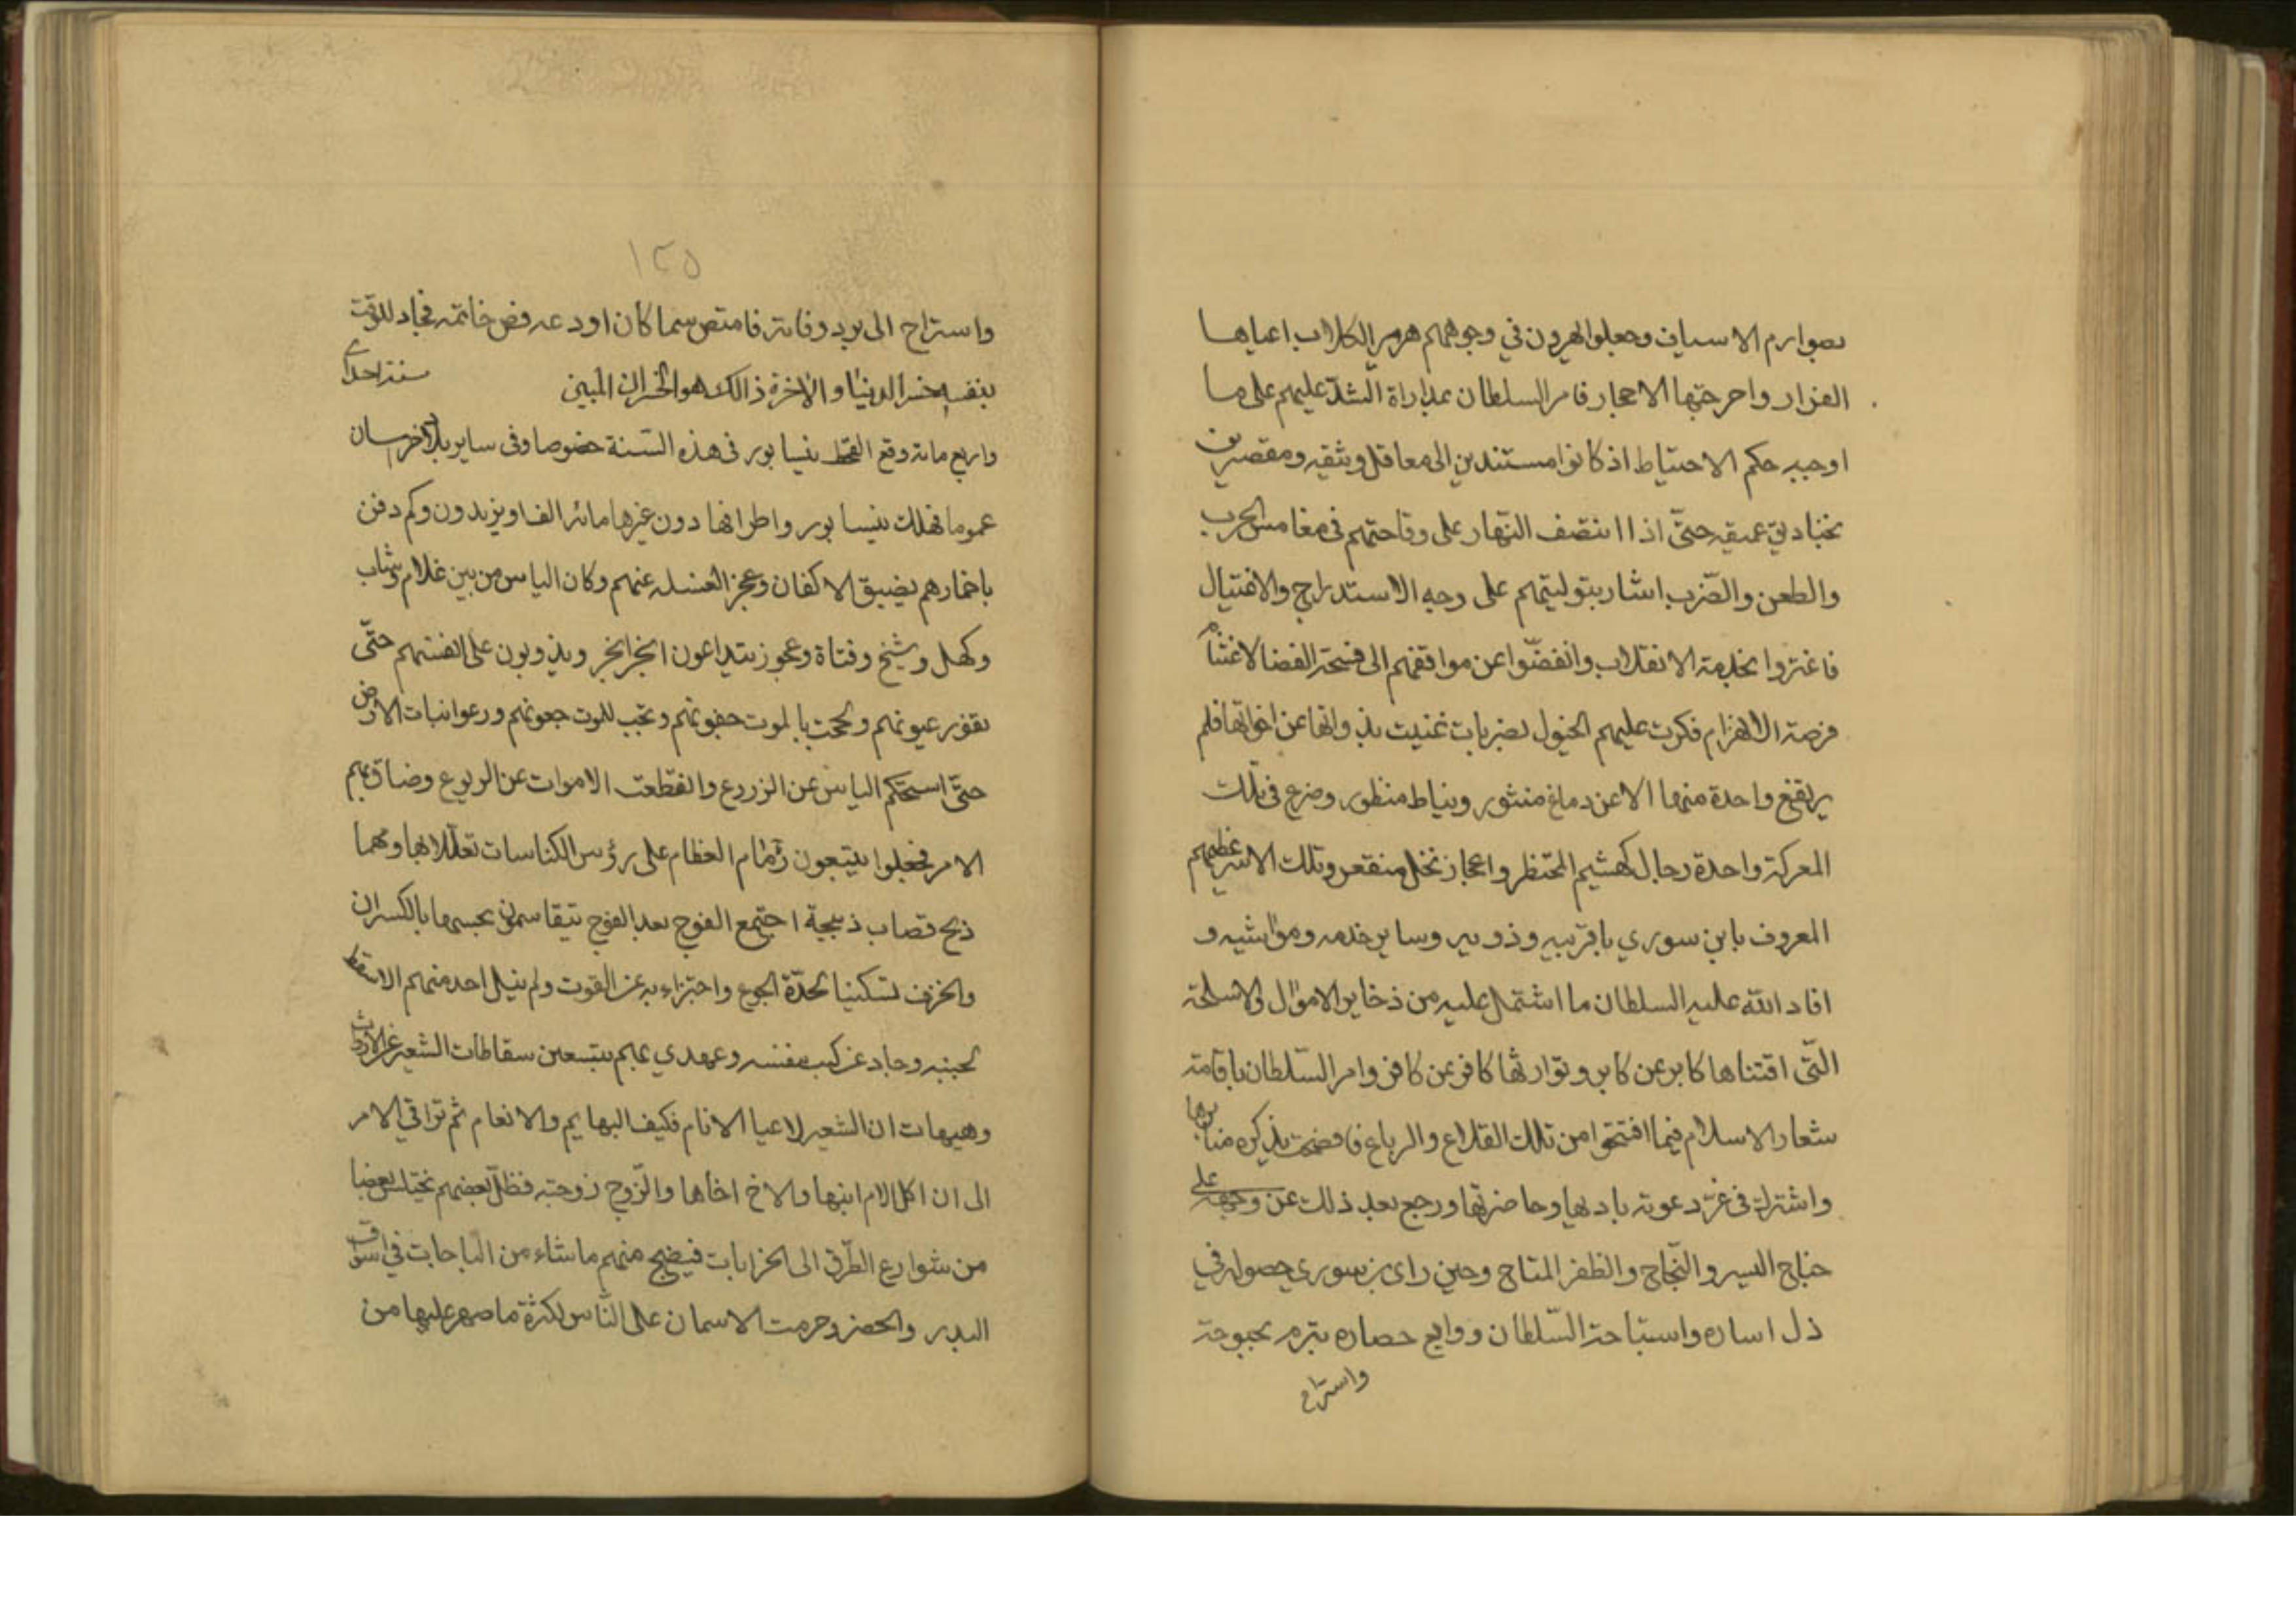 بصوارم الاسياف وجعلوا يهرون في وجوههم هرير الكلاب اعياها
الفرار واحرجتها الاحجار فامر السلطان بمداراة الشد عليهم على ما
اوجبه حكم الاحتياط اذ كانوا مستندين الى معاقل وثيقه ومقصرين
بخنادق عميقه حتّى اذا انتصف النّهار على وقاحتهم في مغامس الحرب
والطعن والضّرب اشار بتوليتهم على وجه الاستدراج والاغتيال
فاغتروا بخدعة الانقلاب وانفضّوا عن مواقفهم الى فسحة الفضا لاغتنام
فرصة الانهزام فكرت عليهم الخيول بضربات غنيت بذواتها عن اخواتها فلم
يرتفع واحدة منها الا عن دماغ منثور ونياط منظور وضرع في تلك
المعركة واحدة رجال كهشيم المحتظر واعجاز نخل منقعر وتلك الاسر عظيمهم
المعروف بابن سوري باقربيه وذويه وساير خدمه ومواشيه و
افاد الله عليه السلطان ما اشتمل عليه من ذخاير الاموال والاسلحة
الّتى اقتناها كابر عن كابر وتوارثها كافر عن كافر وامر السّلطان باقامة
شعار الاسلام فيما افتتحوا من تلك القلاع والرباع فافضحت بذكره منابرها
واشترك في عز دعوته باديها وحاضرتها ورجع بعد ذلك عن وجهه على
جناح اليسر والنّجاح والظفر المتاح وحين راى بن سوري حصوله في
ذل اساره واستباحة السّلطان ووايع حصاره تبرم بحبوحة
واستراح
١٢٥
واستراح الى برد وفاته فامتص سما كان اودعه فص خاتمه فجاد للوقت
بنفسه خسر الدينا والاخرة ذالك هو الخسران المبين سنة احدى
واربع مائة وقع القحط بنيسابور في هذه السّنة خصوصا وفي ساير بلاد خراسان
عموما فهلك بنيسابور واطرافها دون غيرها مائة الف او يزيدون وكم دفن
باطمارهم لضيق الاكفان وعجز الغسله عنهم وكان الياس من بين غلام وشاب
وكهل وشيخ وفتاة وعجوز يتداعون الخبز الخبز ويذوبون على انفسهم حتّى
تغور عيونهم والحجت بالموت جفونهم وتجب للموت جعونهم ورعوا نبات الارض
حتّى استحكم الياس عن الزروع وانقطعت الاموات عن الربوع وضاق بهم
الامر فجعلوا يتبعون رمام العظام على رؤس الكناسات تعللا بها ومهما
ذبح قصاب ذبيحة اجتمع الفوج بعد الفوج يتقاسمون بحبسها بالكسران
والخزف تسكينا لحدّة الجوع واجتزاء به عن القوت ولم ينيل احد منهم الا سقط
لجنبه وجاد عن كثب بنفسه وعهدي بهم يتتبعون سقاطات الشعير عن الارواث
وهيهات ان الشعير لاعيا الانام فكيف البهايم والانعام ثم تراقى الامر
الى ان اكل الام ابنها والاخ اخاها والزوج زوجته فظل بعضهم يختلس بعضا
من شوارع الطّرق الى الخرابات فيضيح منهم ما شاء من الباجات في اسواق
البدر والحضر وحرمت الاسمان على النّاس لكثرة ما صهر عليها من